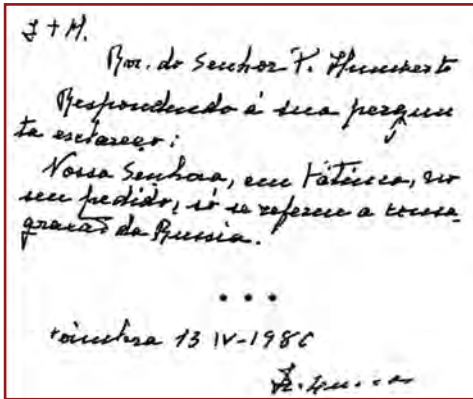 J + M.
Rev. do Senhor P. Humberto
Respondendo á sua pergun
ta esclareço:
Nossa Senhora, em Fátima, no
seu pedido, só se referiu a consa
gração da Russia.!
...
Coimbra 13 IV-1980
Ir. Lucia